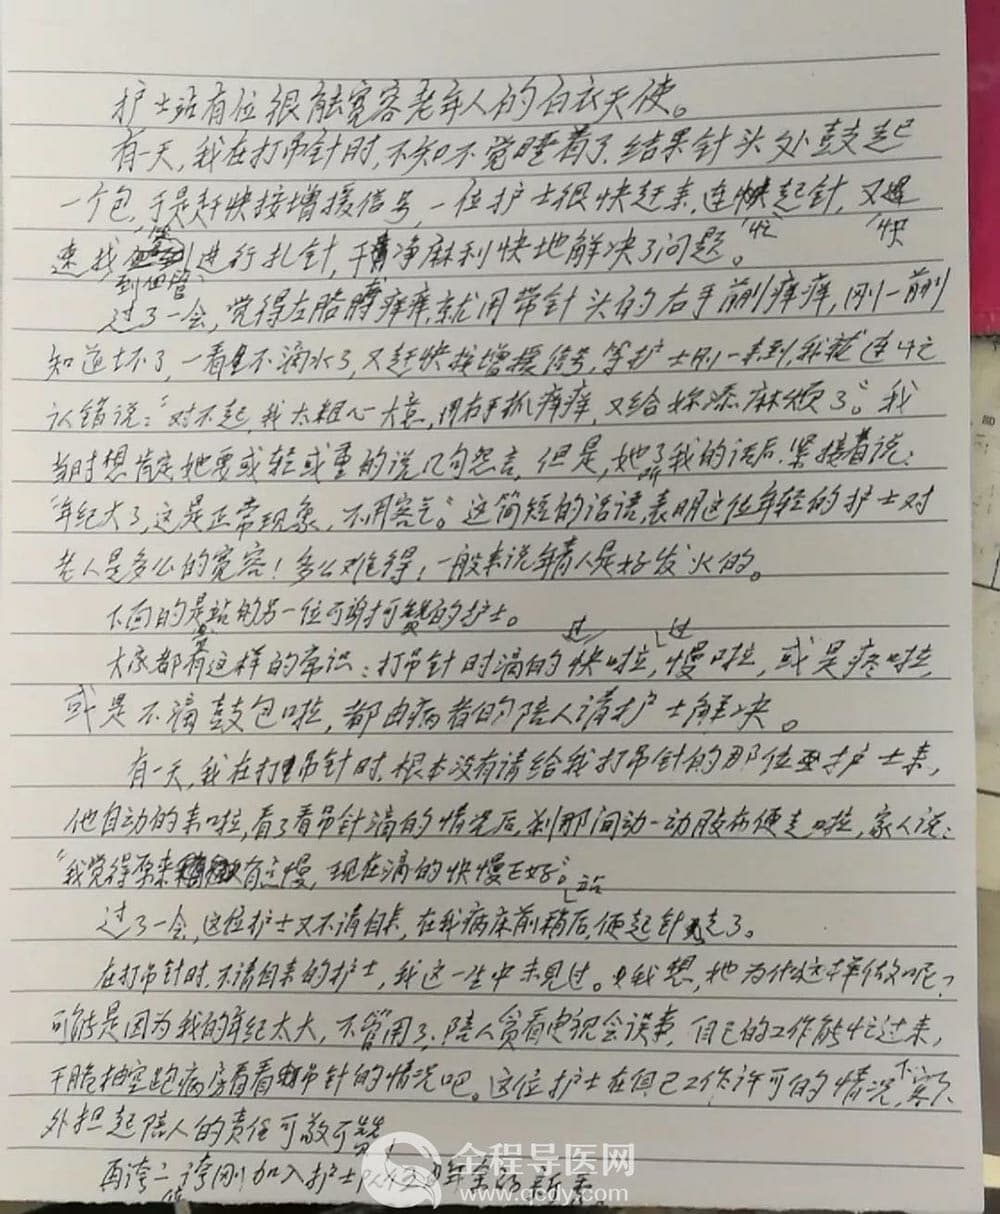 护士站有位很能宽容老年人的白衣天使。
有一天,我在打吊针时,不知不觉睡着了,结果针头处鼓起
一个包,于是赶快按增援信号,一位护士很快赶来,连忙起针,又快
速找到血管进行扎针,干净麻利快地解决了问题。
过了一会,觉得左胳膊痒痒,就用带针头的右手前削痒痒,刚一前削
知道坏了,一看是不滴水了,又赶快按增援信号,等护士刚一来到,我就连忙
认错说:“对不起,我太粗心大意,用右手抓痒痒,又给你添麻烦了”。我
当时想肯定她要或轻或重的说几句怨言,但是,她听了我的话后,紧接着说:
“年纪大了,这是正常现象,不用客气”。这简短的话语,表明这位年轻的护士对
老人是多么的宽容!多么难得,一般来说年青人是好发火的。
下面的是站的另一位可谢可赞的护士。
大家都有这样的常识:打吊针时滴的过快啦,过慢啦,或是疼啦,
或是不滴鼓包啦,都由病者的陪人请护士解决。
有一天,我在打吊针时,根本没有请给我打吊针的那位护士来,
他自动的来啦,看了看吊针滴的情况后,刹那间动一动胶布便走啦,家人说:
“我觉得原来有点慢,现在滴的快慢正好”。
过了一会,这位护士又不请自来,在我病床前稍站后,便起针走了。
在打吊针时,不请自来的护士,我这一生中未见过。我想,她为什么这样做呢?
可能是因为我的年纪太大,不管用了,陪人贪看电视会误事,自己的工作能忙过来,
干脆抽空跑病房看看吊针的情况吧。这位护士在自己工作许可的情况下,额
外担起陪人的责任可敬可赞
再夸一夸刚加入护士队
全程导医网
www.qcdy.com